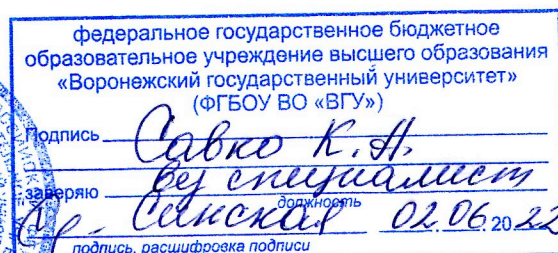 федеральное государственное бюджетное
образовательное учреждение высшего образования
«Воронежский государственный университет»
(ФГБОУ ВО «ВГУ»)
Подпись Савко К.А.
заверяю вед специалист
должность
Синская 02.06.2022
подпись, расшифровка подписи